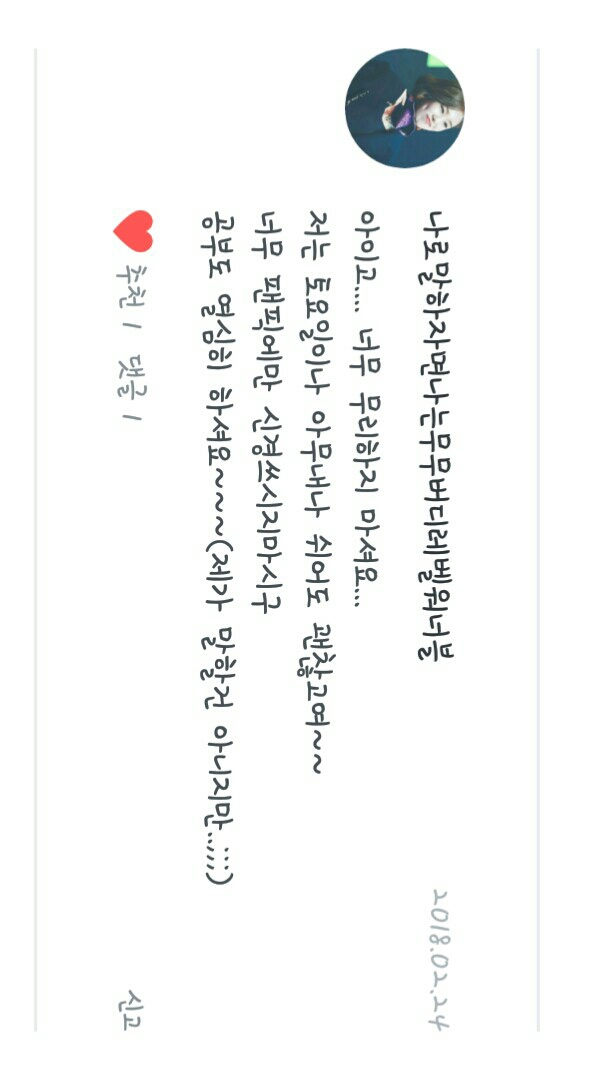 나로말하자면나는무무버디레벨워너블
2018.02.24
아이고.... 너무 무리하지 마셔요...
저는 토요일이나 아무내나 쉬어도 괜찮고여~~
너무 팬픽에만 신경쓰시지마시구
공부도 열심히 하셔요~~~(제가 말할건 아니지만..;;;)
추천 1 댓글 1
신고